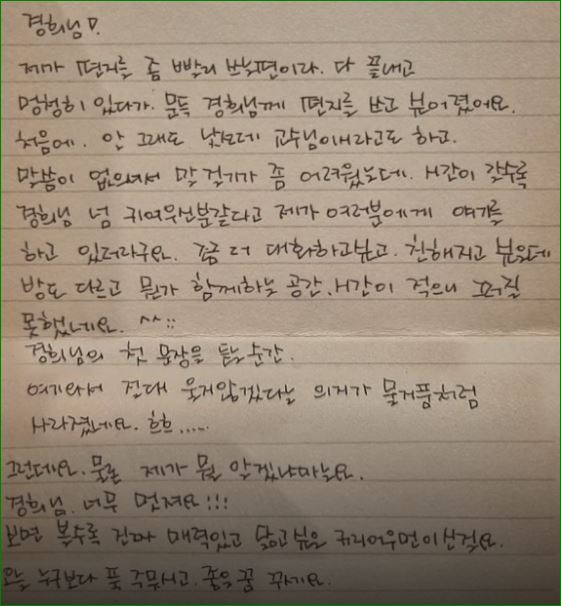 경희님♡.
제가 편지를 좀 빨리 쓰는편이라. 다 끝내고
멍청히 있다가. 문득 경희님께 편지를 쓰고 싶어졌어요.
처음에. 안 그래도 낯선데 교수님이시라고도 하고.
말씀이 없으셔서 말 걸기가 좀 어려웠는데. 시간이 갈수록
경희님 넘 귀여우신분같다고 제가 여러분에게 얘기를
하고 있더라구요. 좀 더 대화하고싶고. 친해지고 싶은데
방도 다르고 뭔가 함께하는 공간. 시간이 적으니 그러질
못했네요. ^^;;
경희님의 첫 문장을 듣는 순간.
여기와서 절대 울지않겠다는 의지가 물거품처럼
사라졌네요. 흐흐.....
그런데요. 물론 제가 뭘 알겠냐마는요.
경희님. 너무 멋져요!!!
보면 볼수록 진짜 매력있고 닮고싶은 커리어우먼이신걸요.
오늘 누구보다 푹 주무시고. 좋은꿈 꾸세요.